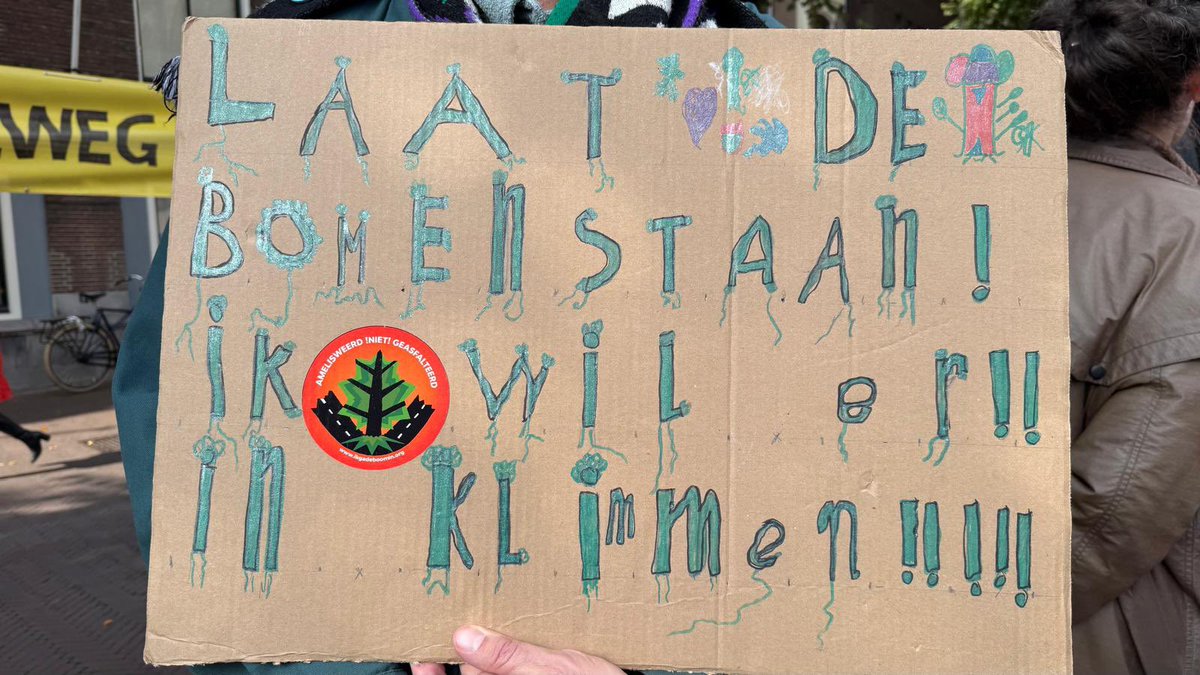 WEG
LAAT DE
BOMEN STAAN!
ik wil er!!
in klimmen!!!!!
AMELISWEERD !NIET! GEASFALTEERD